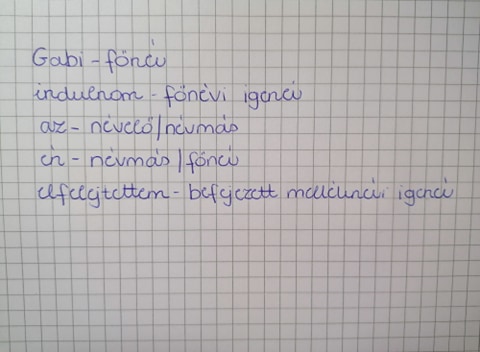 Gabi - főnév
indulnom - főnévi igenév
az - névelő/névmás
én - névmás/főnév
elfelejtettem - befejezett melléknévi igenév